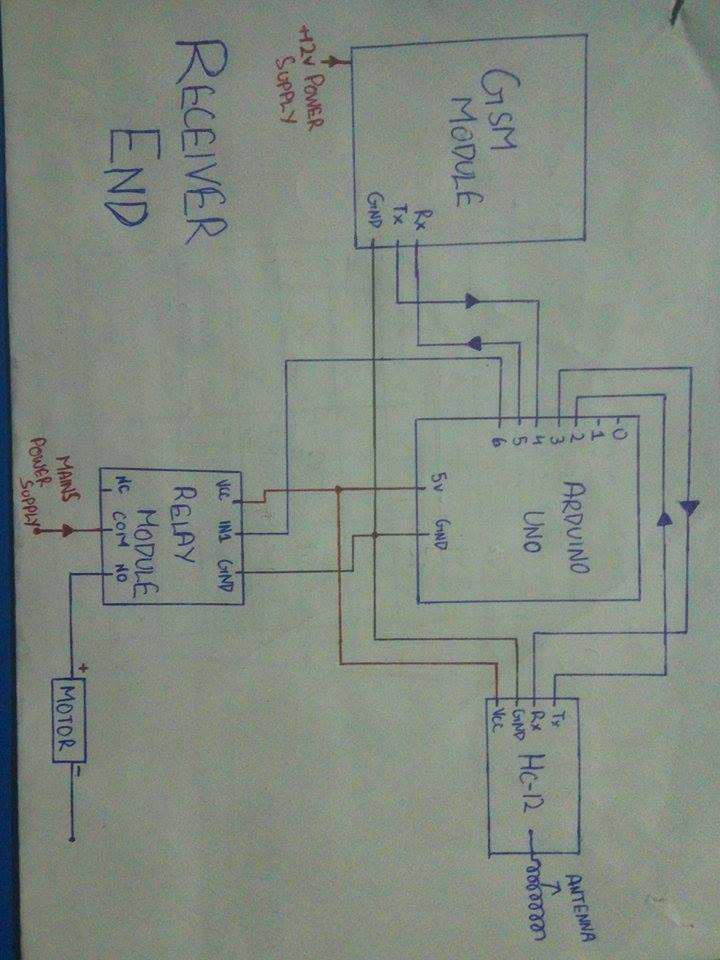 RECEIVER
END
+12V POWER
SUPPLY
GSM
MODULE
Rx
Tx
GND
0
1
2
3
4
5
6
ARDUINO
UNO
5V
GND
Tx
Rx
GND
Vcc
HC-12
ANTENNA
Vcc
IN1
GND
RELAY
MODULE
NC
COM
NO
MAINS
POWER
SUPPLY
+
MOTOR
-